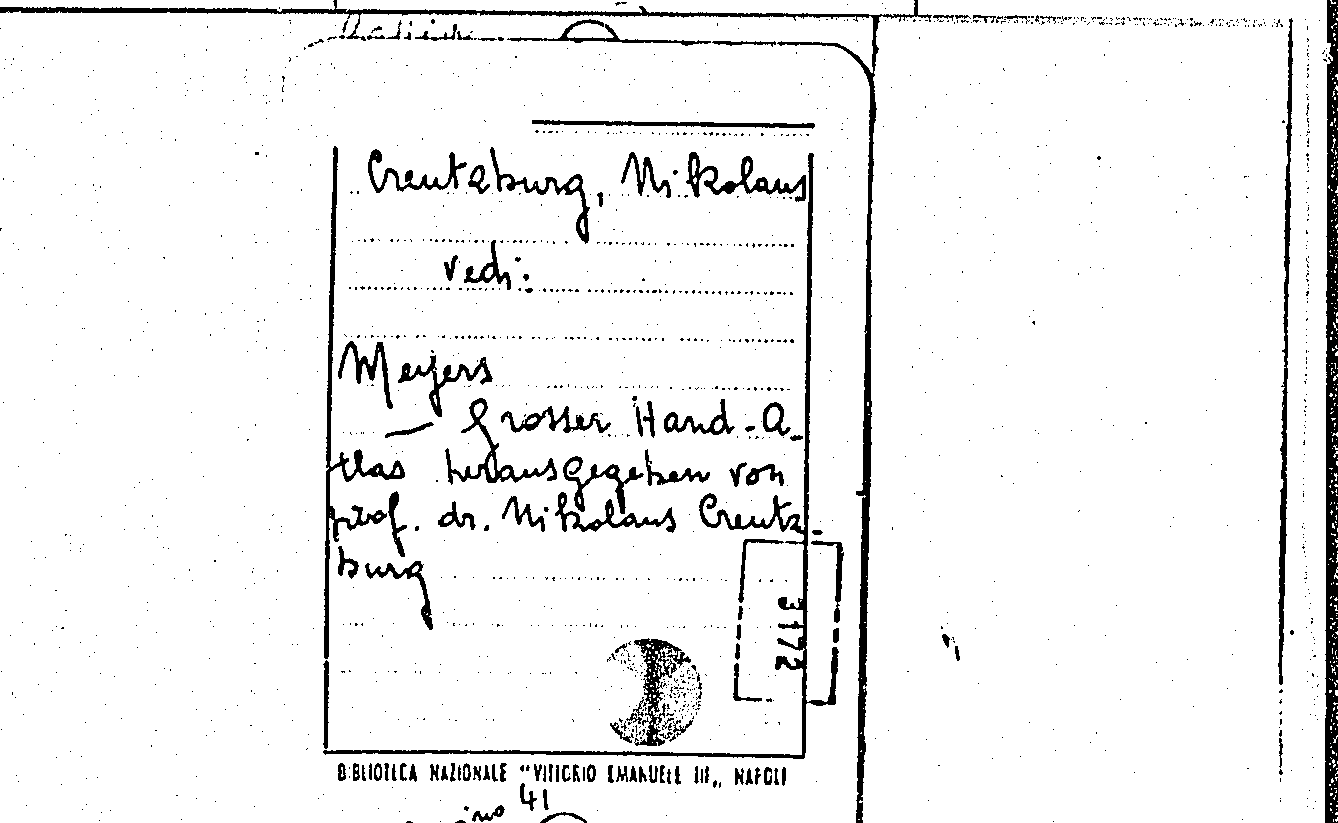 Creutzburg, Nikolaus
vedi:
Meyers
— Grosser Hand-A-
tlas herausgegeben von
prof. dr. Nikolaus Creutz-
burg
3172
BIBLIOTECA NAZIONALE "VITTORIO EMANUELE III„ NAPOLI
41